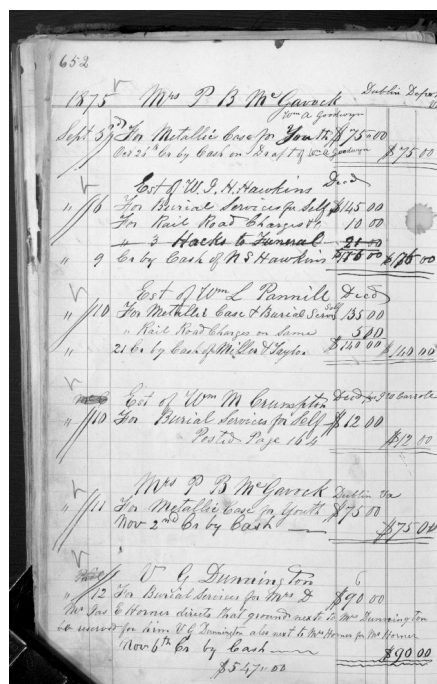 652
1875 Mrs P B McGavock Dublin Depot
Wm A Goodwyn
Sept 3rd For Metallic Case for Youth $75.00
Oct 26th Cr by Cash on Draft of Wm A Goodwyn $75.00
Est of W. J. H. Hawkins Decd
" 6 For Burial Services for Self $145.00
For Rail Road Charges &c 10 00
" 3 Hacks to Funeral 21 00
" 9 Cr by Cash of N S Hawkins $176 00 $176 00
Est of Wm L Pannill Decd
" 10 For Metallic Case & Burial Servs Self 135 00
" Rail Road Charges on Same 5 00
$140 00
" 21 Cr by Cash of Miller & Taylor $140 00
Est of Wm M Crumpton Decd
" 10 For Burial Services for Self $12 00
Posted Page 164 $12 00
Mrs P B McGavock Dublin Va
" 11 For Metallic Case for Youth $75 00
Nov 2nd Cr by Cash $75 00
V G Dunnington
" 12 For Burial Services for Mrs D $90.00
Mr Jas E Horner directs that ground next to Mr Dunnington
be reserved for him V G Dunnington also next to Mr Horner for Mr Horner
Nov 6th Cr by Cash $90.00
$547.00